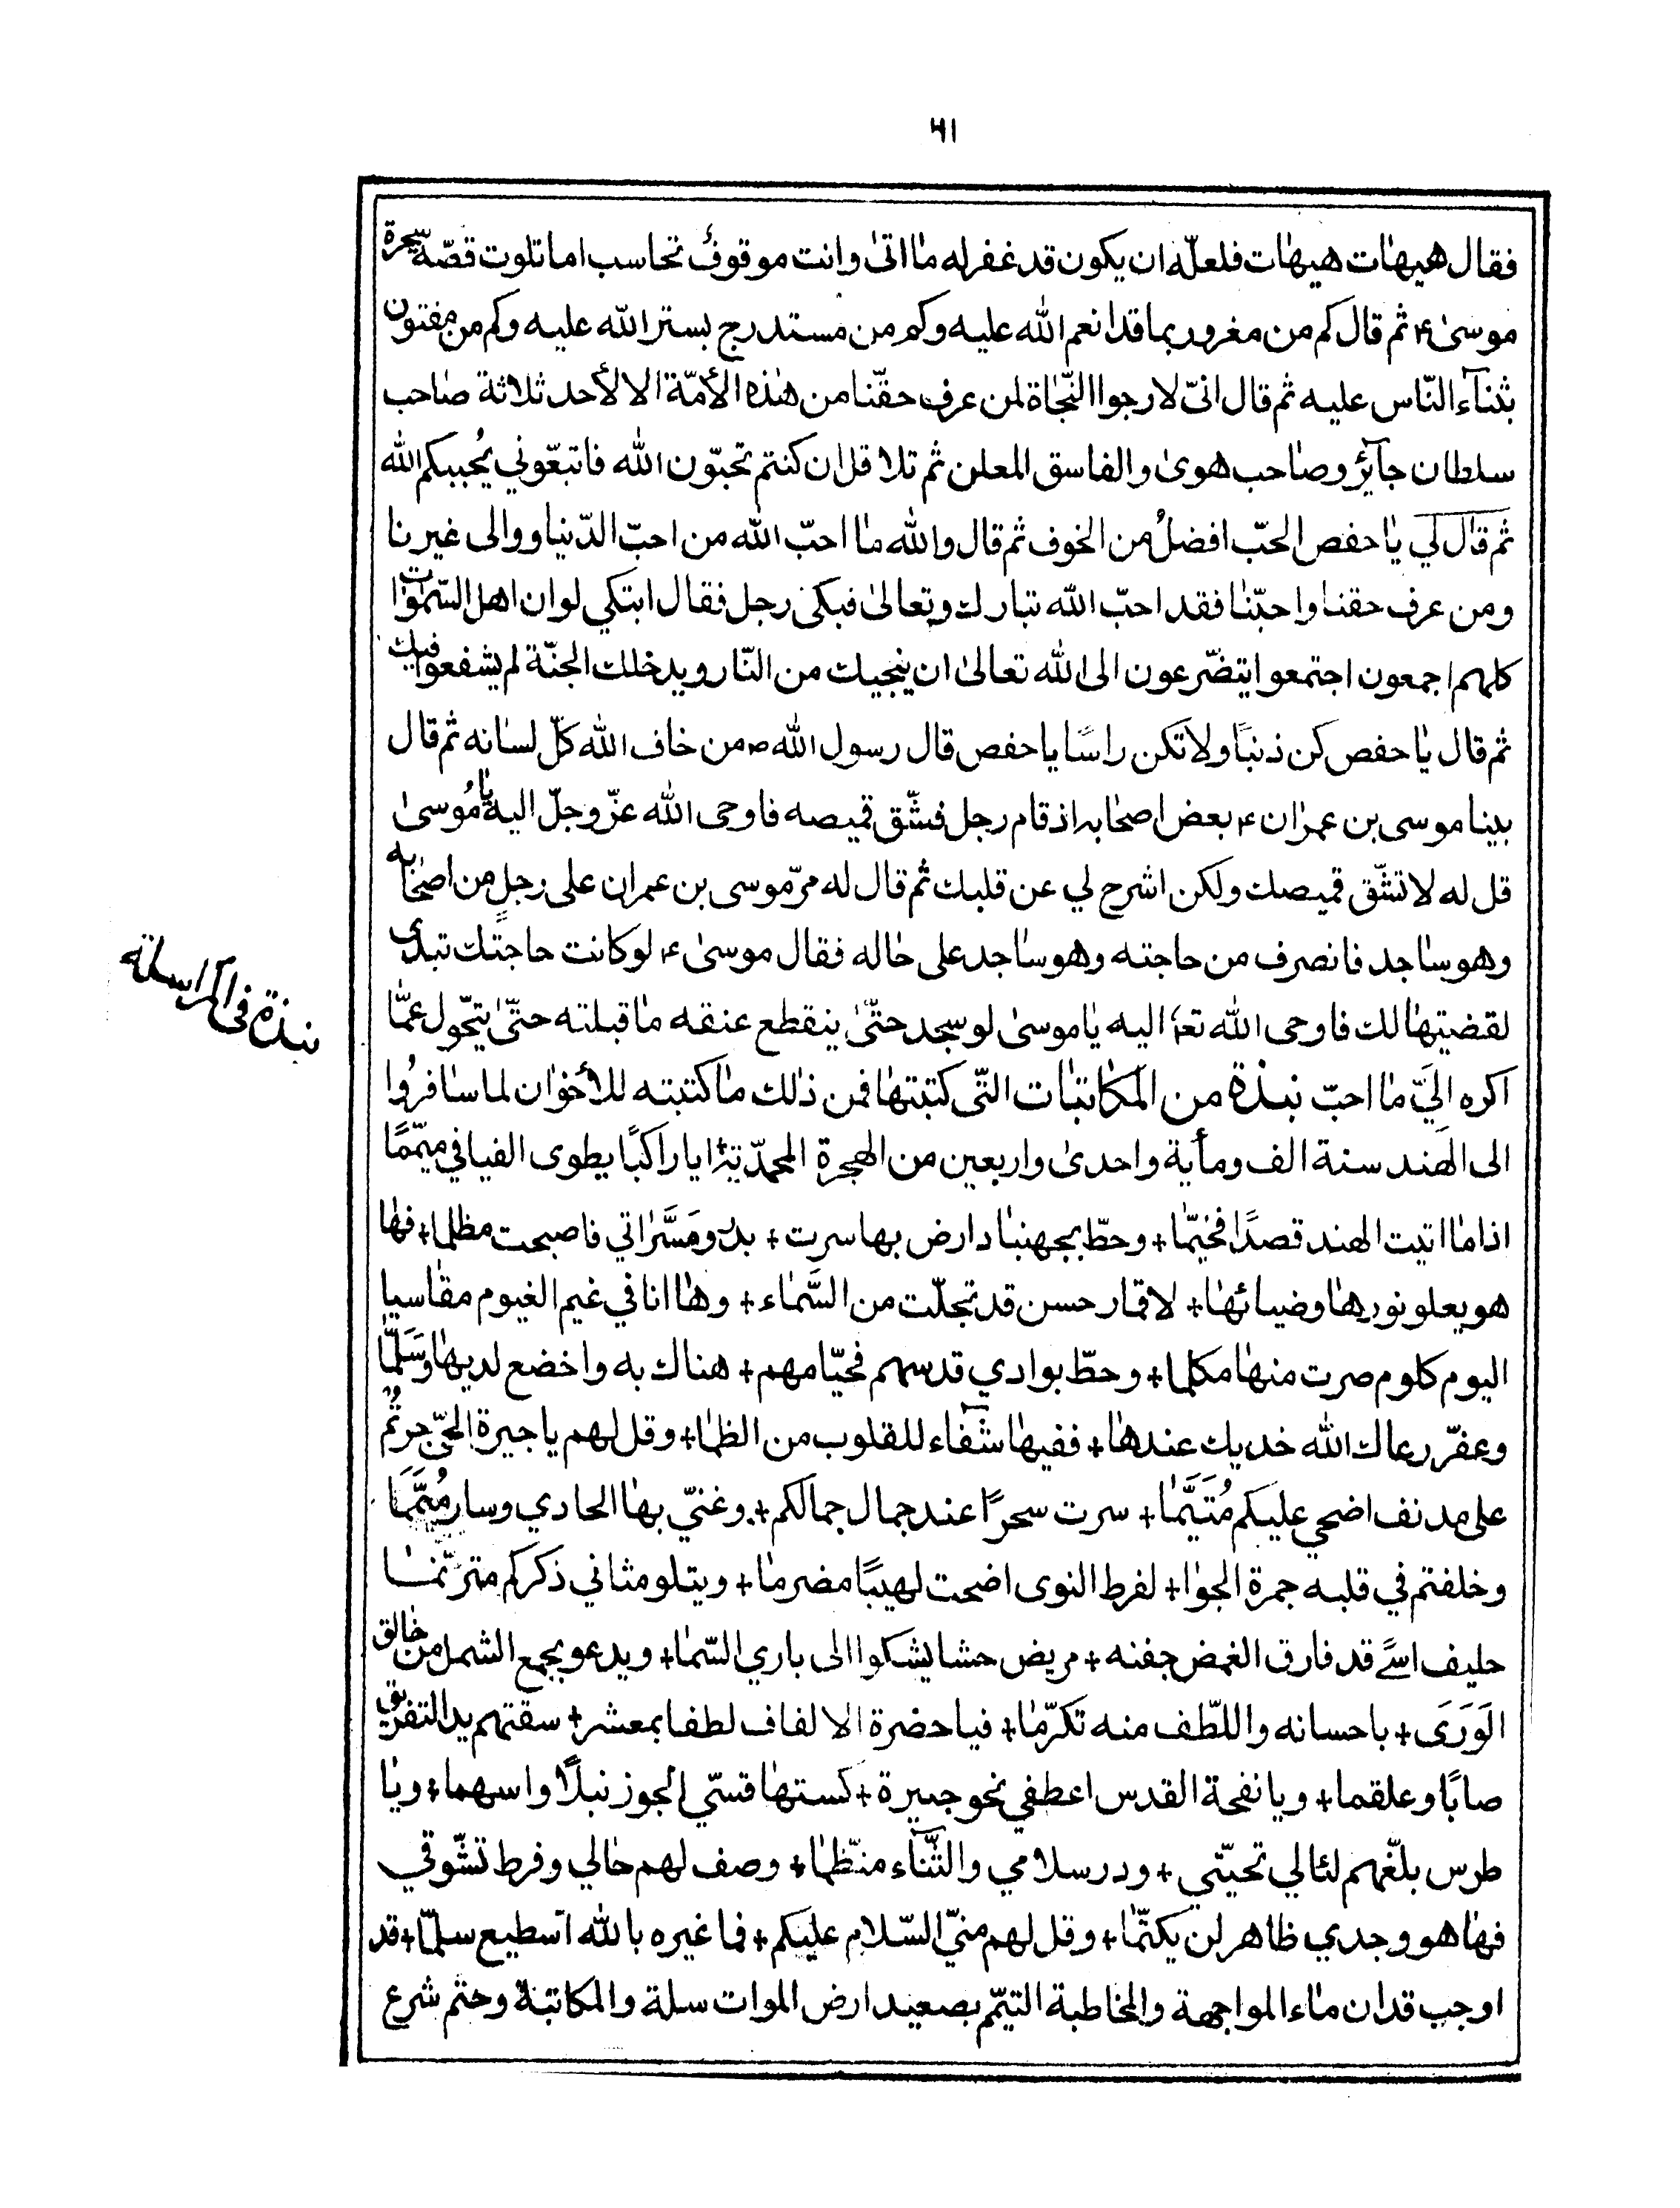 ٤١
فقال هيهات هيهات فلعلّه ان يكون قد غفر له ما اتى وانت موقوف تحاسب اما تلوت قصّة سحرة
موسىٰ ع ثم قال كم من مغرور بما قد انعم الله عليه وكم من مستدرج بستر الله عليه وكم من مفتون
بثنآء النّاس عليه ثم قال انىّ لارجوا النّجاة لمن عرف حقّنا من هٰذه الأمّة الا لأحد ثلاثة صاحب
سلطان جآئر وصاحب هوىٰ والفاسق المعلن ثم تلا قل ان كنتم تحبّون الله فاتبعّوني يُحببكم الله
ثم قال لي يا حفص الحبّ افضلُ من الخوف ثم قال والله ما احبّ الله من احبّ الدّنيا ووالى غيرنا
ومن عرف حقنا واحبّنا فقد احبّ الله تبارك وتعالىٰ فبكى رجل فقال ابتكي لو ان اهل السّمٰوات
كلهم اجمعون اجتمعوا يتضّرعون الى الله تعالىٰ ان ينجيك من النّار ويدخلك الجنّة لم يشفعوا فيك
ثم قال يا حفص كن ذنبًا ولا تكن راسًا يا حفص قال رسول الله ص من خاف الله كلّ لسانه ثم قال
بينا موسى بن عمران ع بعض اصحابه اذ قام رجل فشّق قميصه فاوحى الله عزّ وجلّ اليه يا مُوسىٰ
قل له لا تشّق قميصك ولكن اشرح لي عن قلبك ثم قال له مرّ موسى بن عمران على رجلٍ من اصحابه
وهو ساجد فانصرف من حاجته وهو ساجد على حاله فقال موسىٰ ع لو كانت حاجتك تبدى
لقضيتها لك فاوحى الله تع اليه يا موسىٰ لو سجد حتّىٰ ينقطع عنقه ما قبلته حتّىٰ يتحّول عمّا
اكره اِلَيّ ما احبّ نبذة من المكاتبات التّى كتبتها فمن ذلك ما كتبته للأخوان لما سافرُوا
الى الهند سنة الف ومأية واحدىٰ واربعين من الهجرة المحمدّية ايا راكبًا يطوى الفيافي ميّممًا
اذا ما اتيت الهند قصدًا فخيّما + وحطّ بجهنبادارض بها سرت + بدور مَسَّراتي فاصبحت مظلما + فها
هو يعلو نورها وضيائها + لاقمار حسن قد تجلّت من السَّماء + وها انا في غيم الغيوم مقاسيا
اليوم كلوم صرت منها مكلما + وحطّ بوادي قدسهم فحيّامهم + هناك به واخضع لديها وسَلّمَا
وعفّر رعاك الله خديك عندها + ففيها شفآء للقلوب من الظما + وقل لهم يا جيرة الحيّ جرتُم
على مدنف اضحى عليكم مُتَيَّما + سرت سحرًا عند جمال جمالكم + وغنيّ بها الحادي وسار مُيمّمَا
وخلفتم في قلبه جمرة الجوا + لفرط النوى اضحت لهيبًا مضرما + ويتلو مثاني ذكركم مترنّما
حليف اسًى قد فارق الغمض جفنه + مريض حشا يشكوا الى باري السّما + ويدعو بجمع الشمل من خالق
الوَرَى + باحسانه واللّطف منه تكرّما + فيا حضرة الالفاف لطفا بمعشر + سقتهم يد التفريق
صابًا وعلقما + ويا نفحة القدس اعطفي نحو جيرة + كستها قسّي الجوز نبلًا واسهما + ويا
طرس بلّغهم لئالي تحيّتي + ودر سلامي والثّنآء منّظما + وصف لهم حالي وفرط تشّوقي
فها هو وجدي ظاهر لن يكتّما + وقل لهم منيّ السّلام عليكم + فما غيره بالله اسطيع سلّما + قد
اوجب فقدان ماء المواجهة والمخاطبة التيمّم بصعيد ارض الموات سلة والمكاتبة وحتم شرع
نبذة فى المراسلة